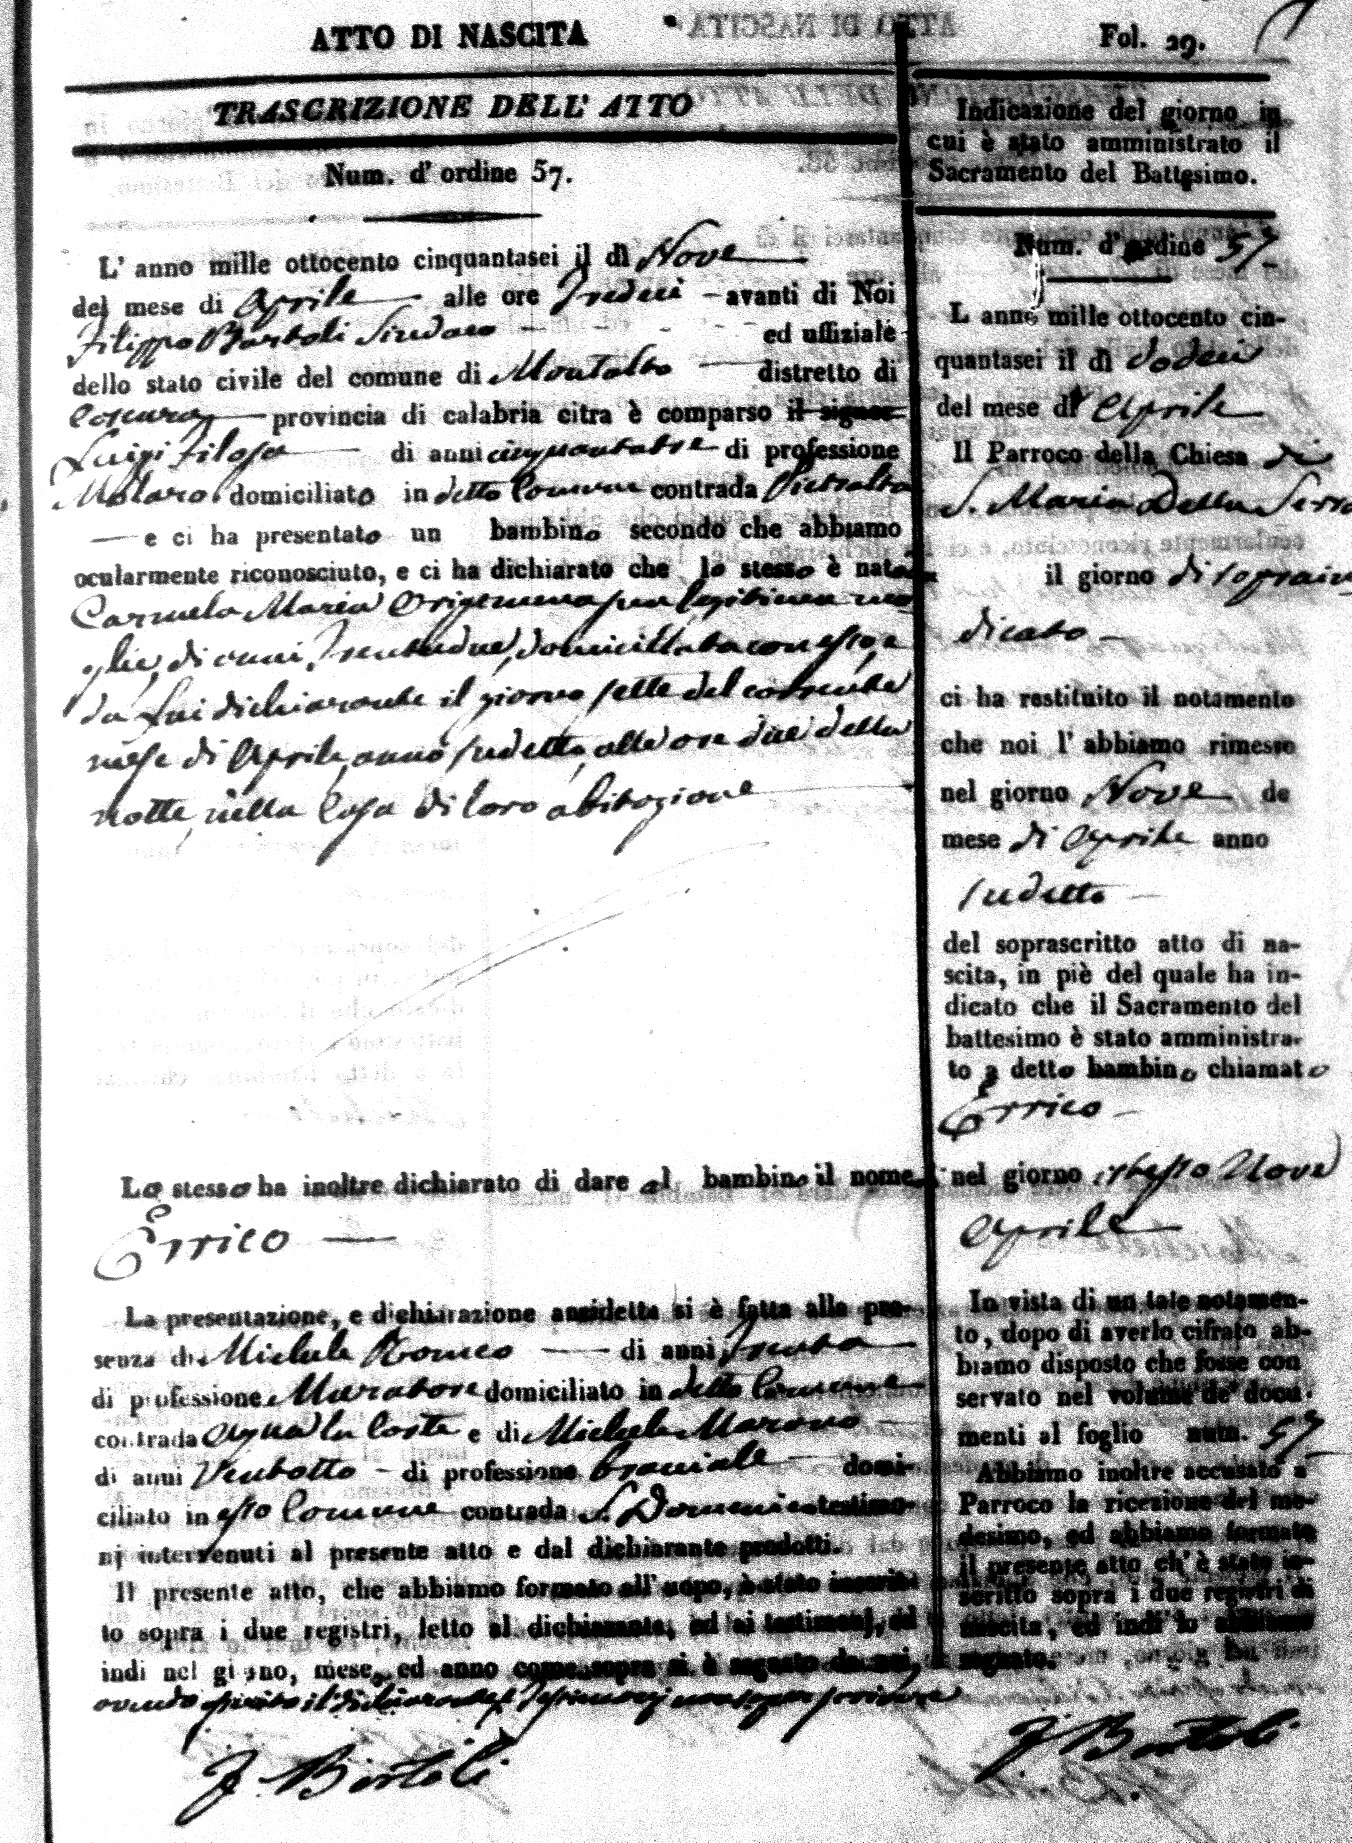 ATTO DI NASCITA
TRASCRIZIONE DELL' ATTO
Num. d' ordine 57.
L' anno mille ottocento cinquantasei il dì Nove
del mese di Aprile alle ore Tredeci avanti di Noi
Filippo Bartoli Sindaco ed uffiziale
dello stato civile del comune di Montalto distretto di
Cosenza provincia di calabria citra è comparso il signor
Luigi Filoso di anni cinquantatre di professione
Molaro domiciliato in detto Comune contrada Pietralta
e ci ha presentato un bambino secondo che abbiamo
ocularmente riconosciuto, e ci ha dichiarato che lo stesso è nato da
Carmela Maria sua legitima mo
glie, di anni Trentadue, domiciliata con esso, e
da Lui dichiarante il giorno sette del corrente
mese di Aprile, anno sudetto, alle ore due della
notte, nella Casa di loro abitazione
Lo stesso ha inoltre dichiarato di dare al bambino il nome
Errico
La presentazione, e dichiarazione anzidetta si è fatta alla pre-
senza di Michele Romeo di anni Trenta
di professione Muratore domiciliato in detto Comune
contrada Acqua la Costa e di Michele
di anni Ventotto di professione Braciale domi-
ciliato in esso Comune contrada S. Domenico testimo-
nj intervenuti al presente atto e dal dichiarante prodotti.
Il presente atto, che abbiamo formato all' uopo, è stato inscrit-
to sopra i due registri, letto al dichiarante, ed ai testimonj, ed
indi nel giorno, mese, ed anno come sopra si è segnato da noi,
avendo asserito il dichiarante, e testimonj non saper scrivere
F. Bartoli
Fol. 29.
Indicazione del giorno in
cui è stato amministrato il
Sacramento del Battesimo.
Num. d' ordine 57
L anno mille ottocento cin-
quantasei il dì dodeci
del mese di Aprile
Il Parroco della Chiesa di
S. Maria Della Serra
il giorno di sopra in
dicato
ci ha restituito il notamento
che noi l' abbiamo rimesso
nel giorno Nove de
mese di Aprile anno
sudetto
del soprascritto atto di na-
scita, in piè del quale ha in-
dicato che il Sacramento del
battesimo è stato amministra-
to a detto bambino chiamato
Errico
nel giorno istesso Nove
Aprile
In vista di un tale notamen-
to, dopo di averlo cifrato ab-
biamo disposto che fosse con
servato nel volume de' docu-
menti al foglio num. 57
Abbiamo inoltre accusato a
Parroco la ricezione del me-
desimo, ed abbiamo formato
il presente atto ch' è stato in-
scritto sopra i due registri di
nascita, ed indi lo abbiamo
segnato.
F. Bartoli